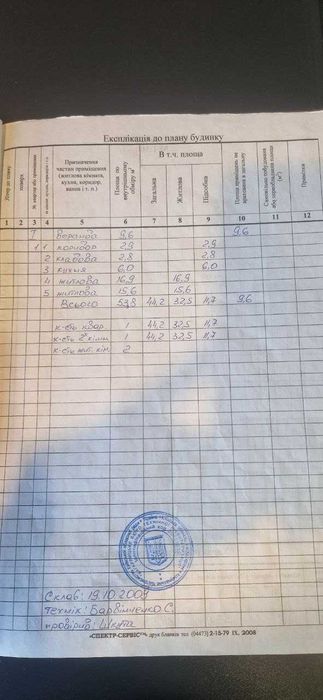 Експлікація до плану будинку
Літер по плану
поверх
№ квартир або приміщення
Призначення частин приміщення (житлова кімната, кухня, коридор, ванна і т. п.)
Площа по внутрішньому обміру м²
В т.ч. площа
Загальна
Житлова
Підсобна
Площа приміщень не врахована в загальну
Самовільно побудована або переобладнана площа (м²)
Примітки
1 2 3 4 5 6 7 8 9 10 11 12
I Веранда 9,6 9,6
1 1 коридор 2,9 2,9
2 кладова 2,8 2,8
3 кухня 6,0 6,0
4 житлова 16,9 16,9
5 житлова 15,6 15,6
Всього 53,8 44,2 32,5 11,7 9,6
к-сть квар. 1 44,2 32,5 11,7
к-сть 2х кімн. 1 44,2 32,5 11,7
к-сть жит. кім. 2
Склав: 19.10.2009
технік: Барвінченко С.
провірив:
«СПЕКТР-СЕРВІС™», друк бланків тел. (04473) 2-15-79 IX. 2008